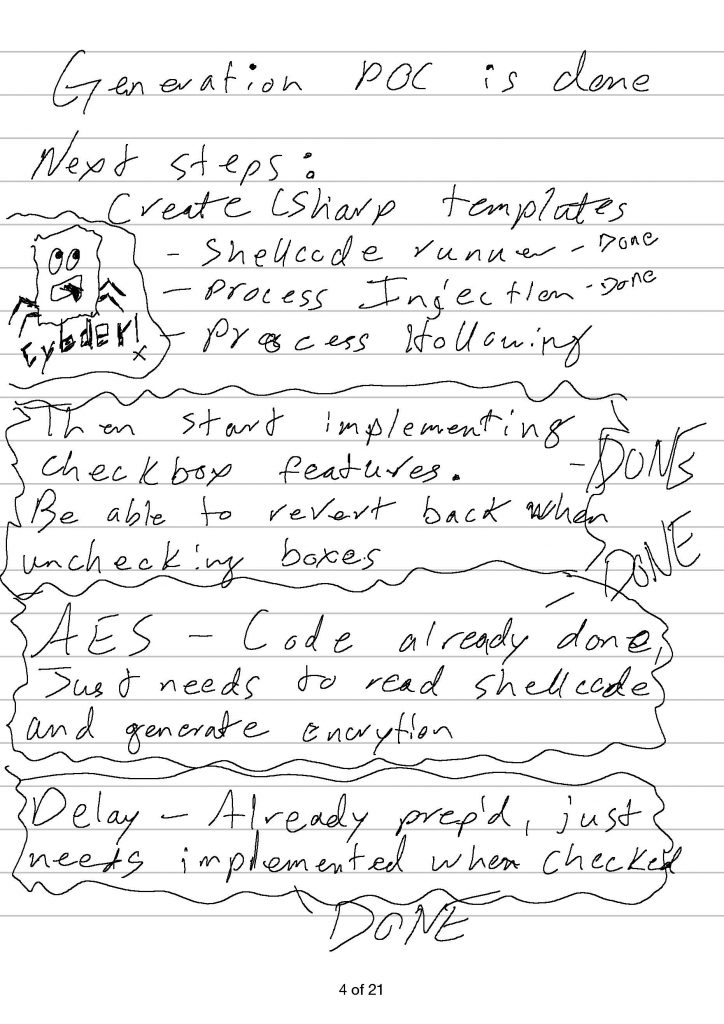 Generation POC is done
Next steps:
Create CSharp templates
- Shellcode runner - Done
- Process Injection - Done
- Process Hollowing
Cybder!
x
Then start implementing
checkbox features.
- DONE
Be able to revert back when
unchecking boxes
- DONE
AES - Code already done,
Just needs to read shellcode
and generate encrytion
Delay - Already prep'd, just
needs implemented when checked
\ DONE
4 of 21